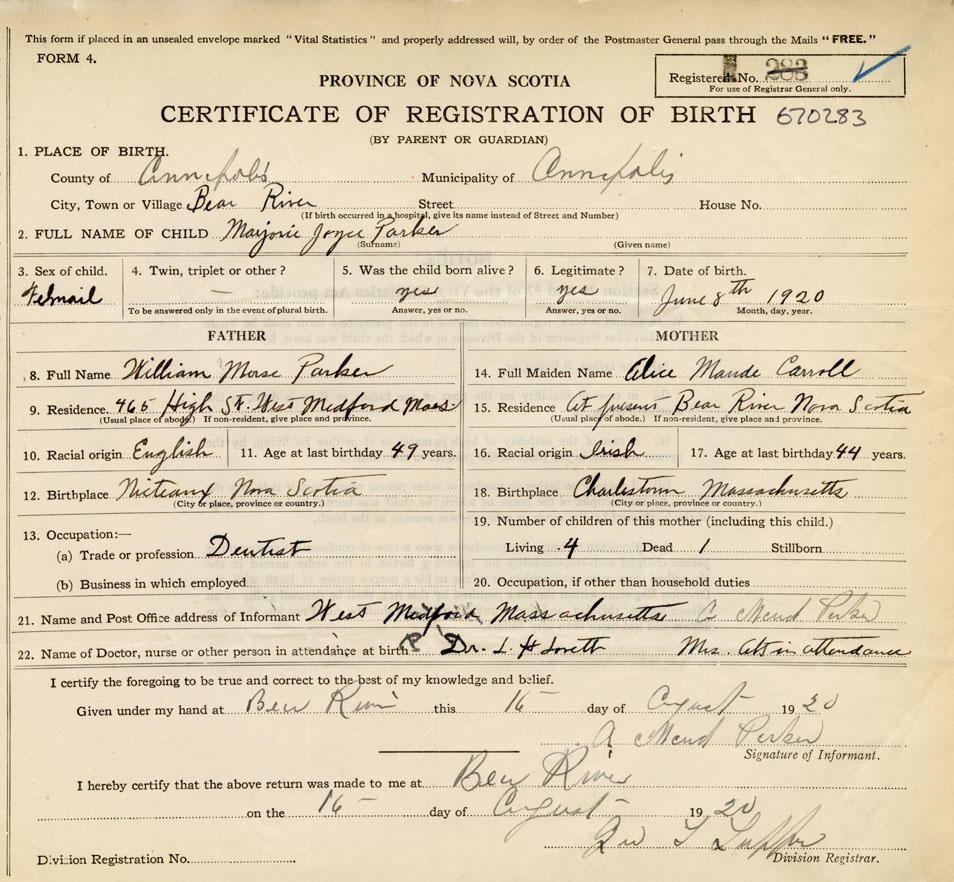 This form if placed in an unsealed envelope marked "Vital Statistics" and properly addressed will, by order of the Postmaster General pass through the Mails "FREE."
FORM 4.
Registered No. 283
For use of Registrar General only.
PROVINCE OF NOVA SCOTIA
CERTIFICATE OF REGISTRATION OF BIRTH 670283
(BY PARENT OR GUARDIAN)
1. PLACE OF BIRTH.
County of Annapolis Municipality of Annapolis
City, Town or Village Bear River Street House No.
(If birth occurred in a hospital, give its name instead of Street and Number)
2. FULL NAME OF CHILD Marjorie Joyce Parker
(Surname) (Given name)
3. Sex of child. 4. Twin, triplet or other? 5. Was the child born alive? 6. Legitimate? 7. Date of birth.
Femail — yes yes June 8th 1920
To be answered only in the event of plural birth. Answer, yes or no. Answer, yes or no. Month, day, year.
FATHER MOTHER
8. Full Name William Morse Parker 14. Full Maiden Name Alice Maude Carroll
9. Residence. 465 High St. West Medford Mass 15. Residence At present Bear River Nova Scotia
(Usual place of abode.) If non-resident, give place and province. (Usual place of abode.) If non-resident, give place and province.
10. Racial origin English 11. Age at last birthday 49 years. 16. Racial origin Irish 17. Age at last birthday 44 years.
12. Birthplace Nicteaux Nova Scotia 18. Birthplace Charlestown Massachusetts
(City or place, province or country.) (City or place, province or country.)
13. Occupation:— 19. Number of children of this mother (including this child.)
(a) Trade or profession Dentist Living 4 Dead 1 Stillborn
(b) Business in which employed 20. Occupation, if other than household duties
21. Name and Post Office address of Informant West Medford Massachusetts Maud Parker
22. Name of Doctor, nurse or other person in attendance at birth Dr. L. H Lovett Mrs. in attendance
I certify the foregoing to be true and correct to the best of my knowledge and belief.
Given under my hand at Bear River this 16 day of August 1920
A Maud Parker
Signature of Informant.
I hereby certify that the above return was made to me at Bear River
on the 16 day of August 1920
Division Registration No. Division Registrar.